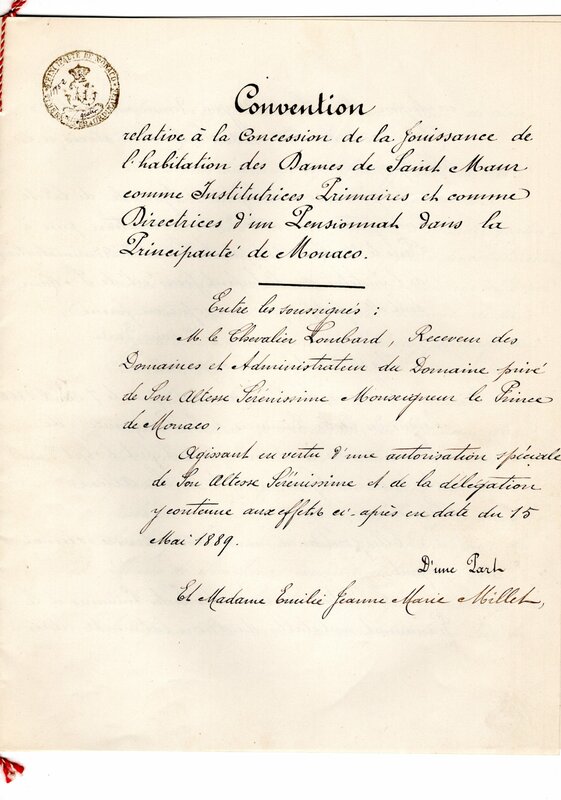 PRINCIPAUTÉ DE MONACO
Convention
relative à la Concession de la Jouissance de
l'habitation des Dames de Saint Maur
comme Institutrices Primaires et comme
Directrices d'un Pensionnat dans la
Principauté de Monaco.
Entre les soussignés :
M. le Chevalier Lombard, Receveur des
Domaines et Administrateur du Domaine privé
de Son Altesse Sérénissime Monseigneur le Prince
de Monaco.
Agissant en vertu d'une autorisation spéciale
de Son Altesse Sérénissime et de la délégation
y contenue aux effets ci-après en date du 15
Mai 1889.
D'une Part
Et Madame Emilie Jeanne Marie Millet,